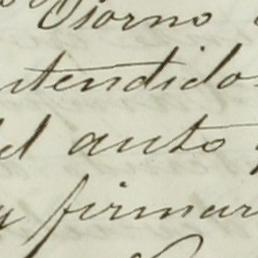 Osorno
ntendido
el auto
firmar